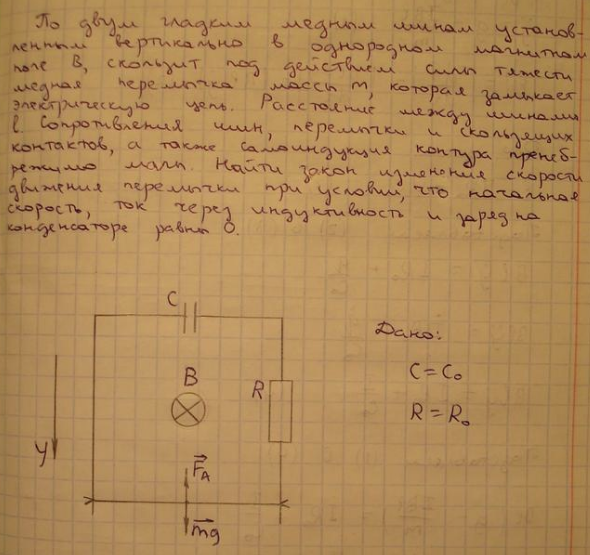 По двум гладким медным шинам установ-
ленным вертикально в однородном магнитном
поле B, скользит под действием силы тяжести
медная перемычка массы m, которая замыкает
электрическую цепь. Расстояние между шинами
l Сопротивления шин, перемычки и скользящих
контактов, а также самоиндукция контура пренеб-
режимо малы. Найти закон изменения скорости
движения перемычки при условии, что начальная
скорость, ток через индуктивность и заряд на
конденсаторе равны 0.
C
Дано:
C = C₀
B
R
R = R₀
y
F⃗A
m⃗g